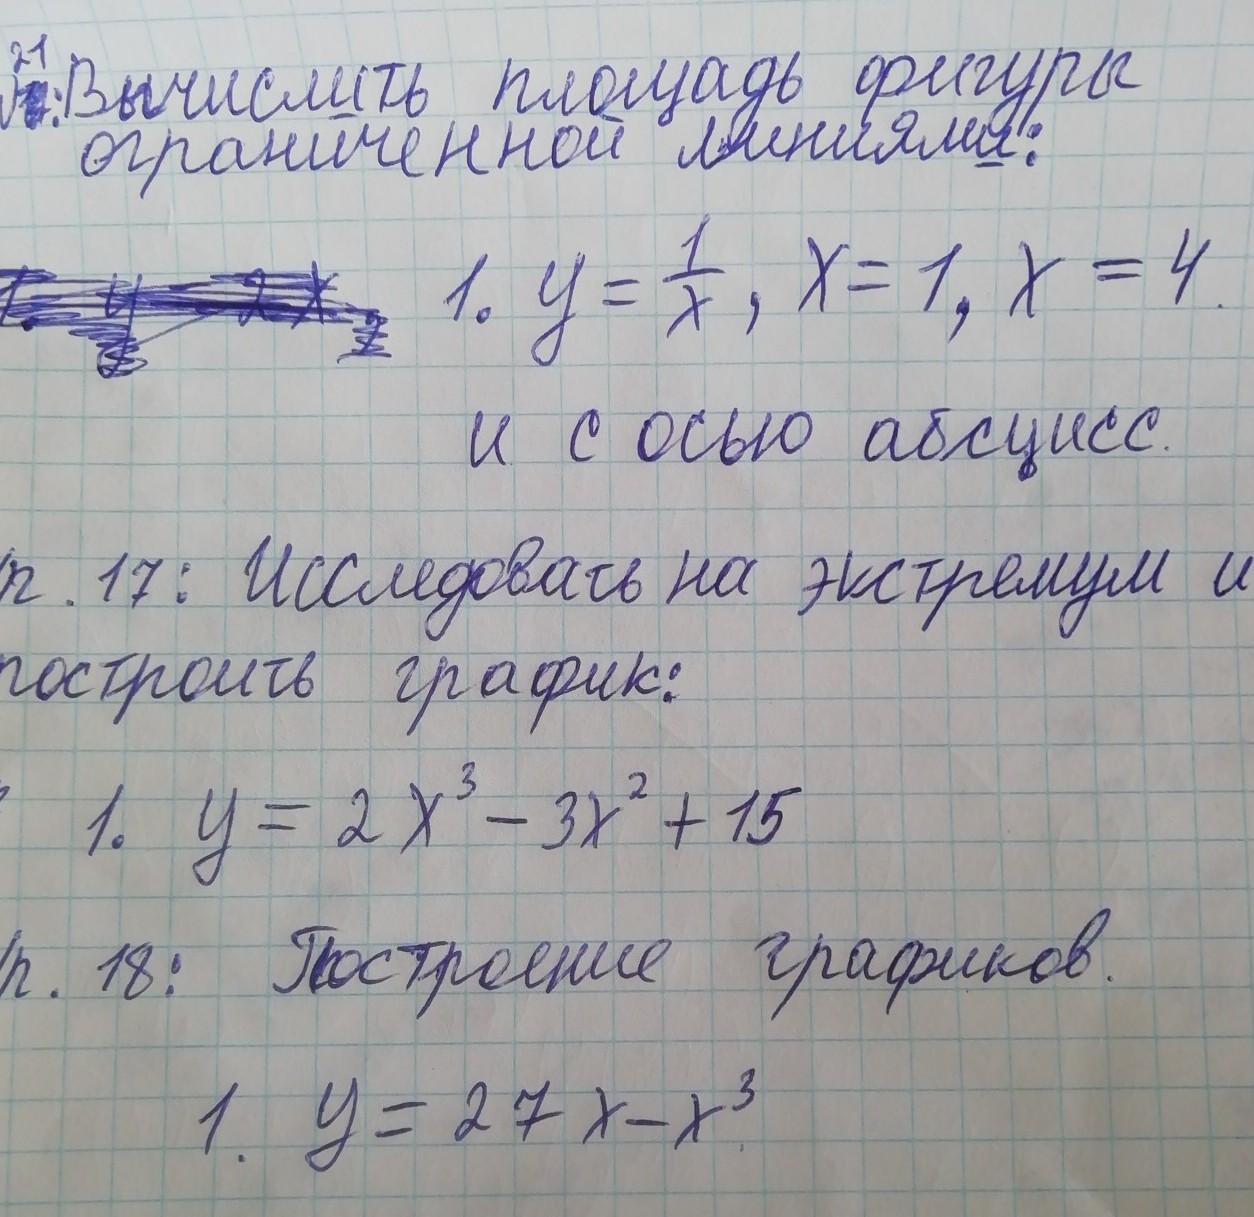 21
Вычислить площадь фигуры
ограниченной линиями:
1. y = 1/x, x = 1, x = 4.
и с осью абсцисс.
п. 17: Исследовать на экстремум и
построить график:
1. y = 2x³ - 3x² + 15
п. 18: Построение графиков.
1. y = 27x - x³